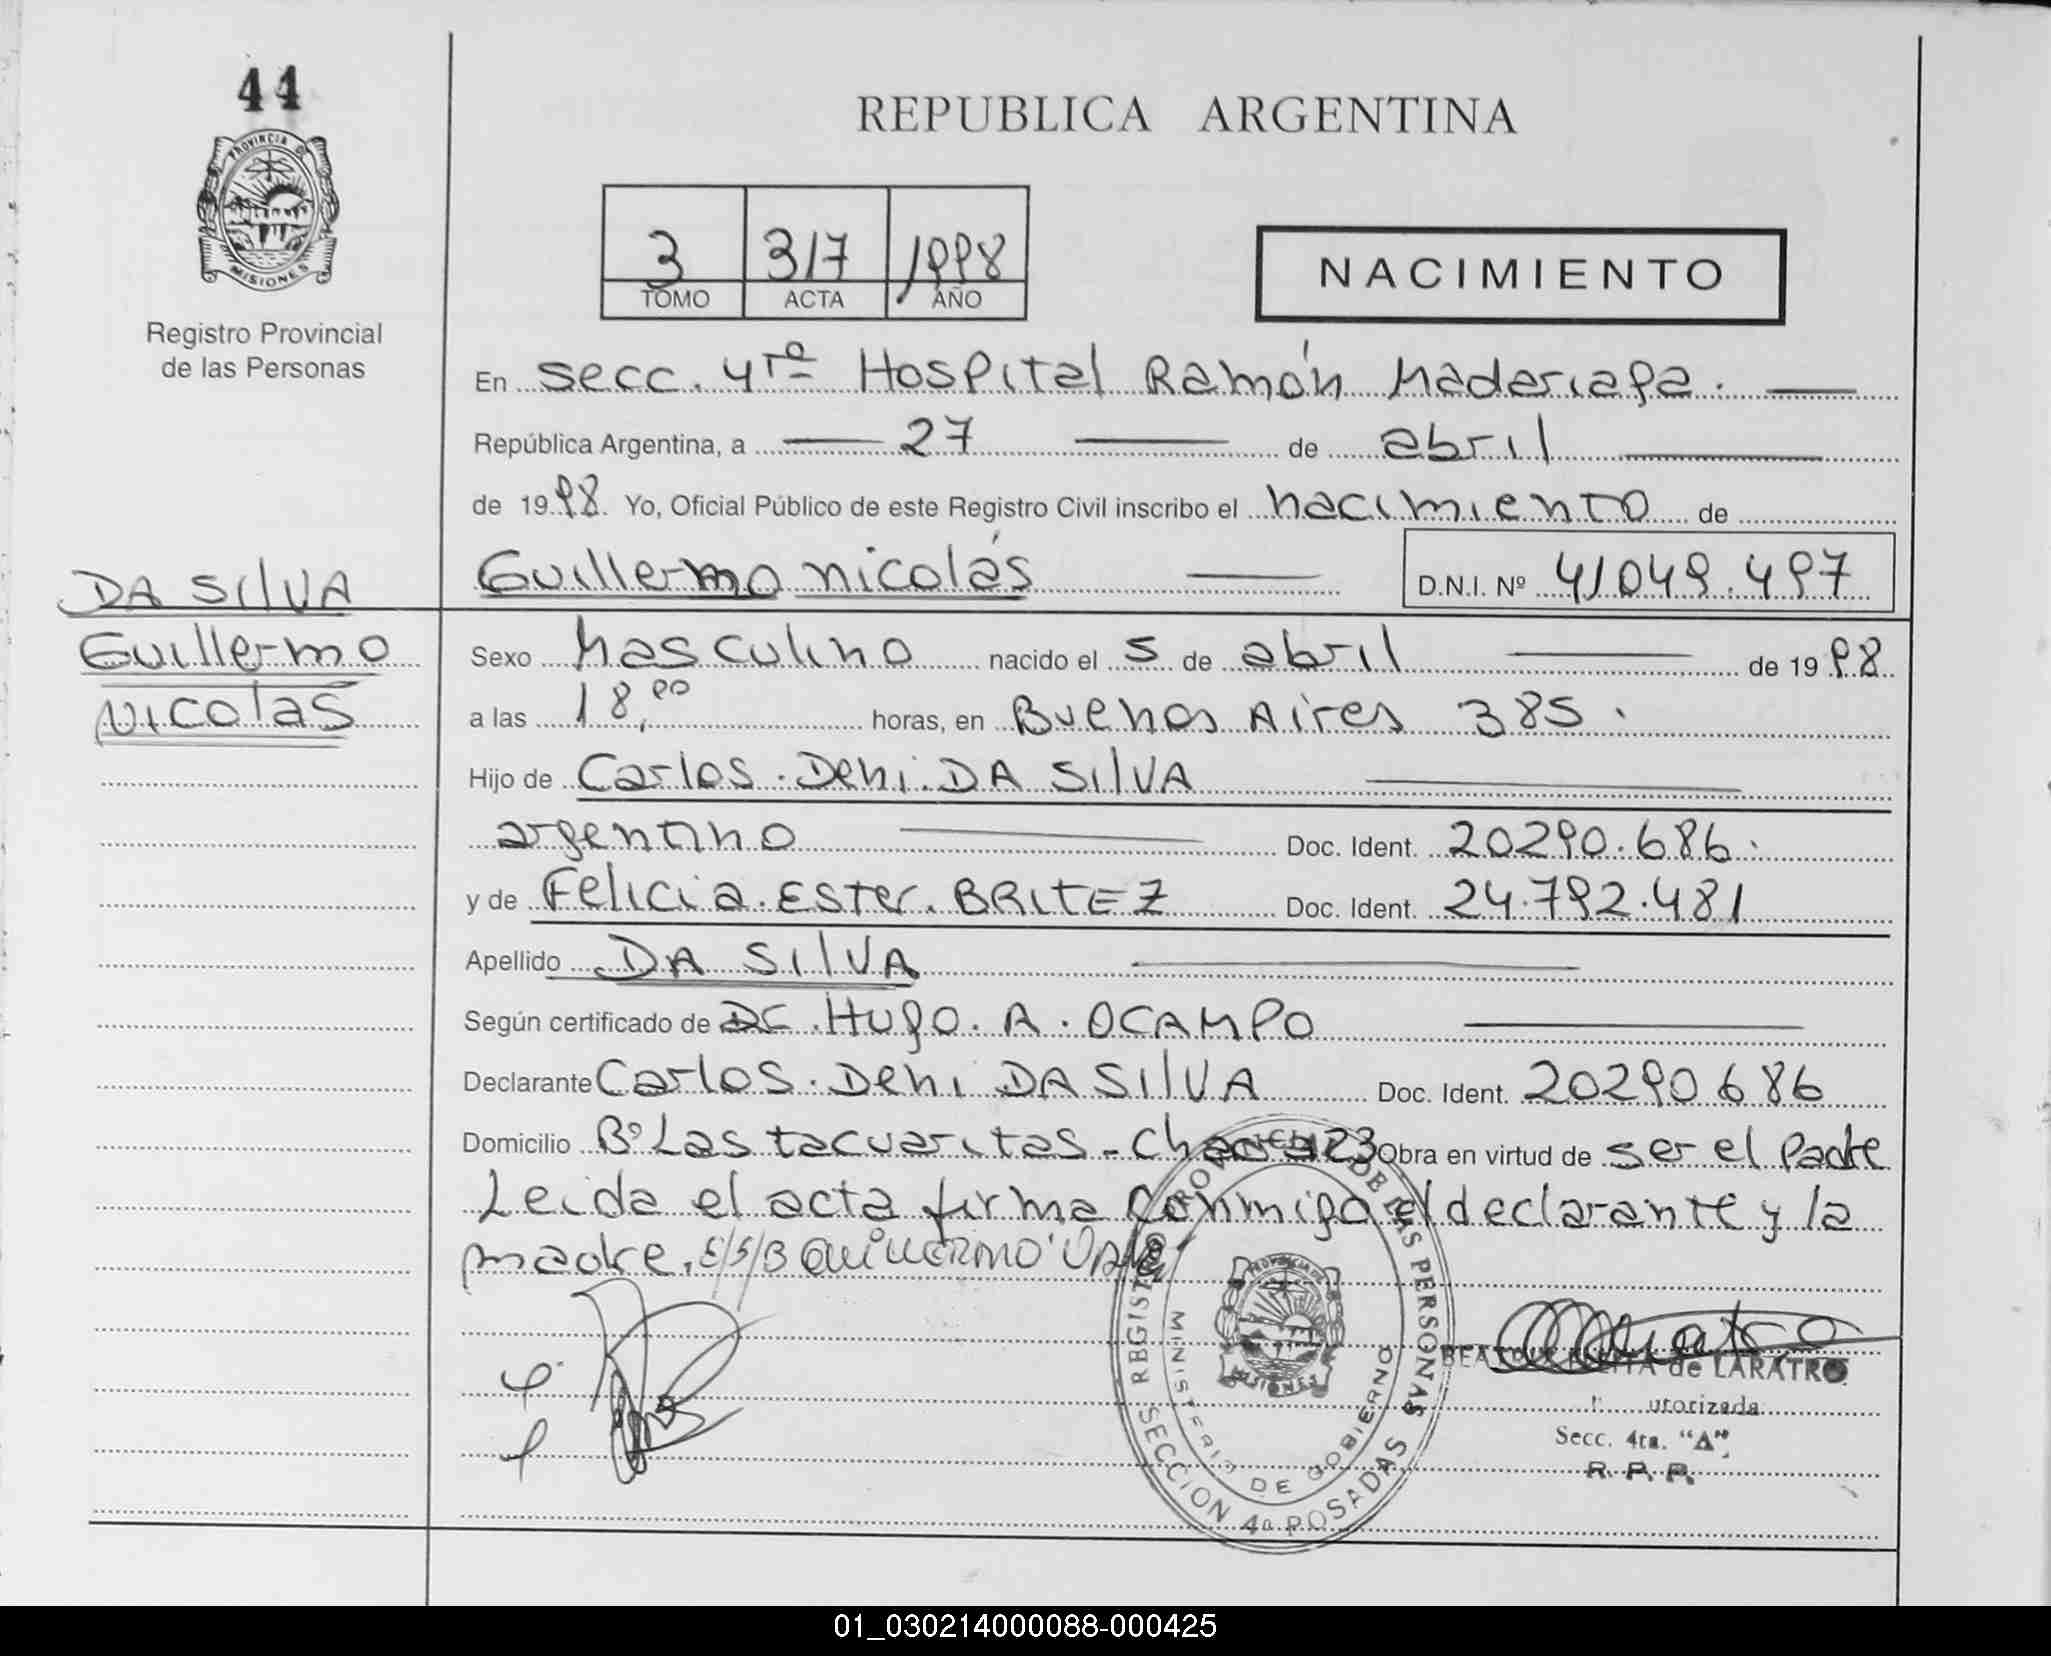 44
PROVINCIA DE
MISIONES
Registro Provincial
de las Personas
REPUBLICA ARGENTINA
3 317 1998
TOMO ACTA AÑO
NACIMIENTO
En secc. 4ta Hospital Ramón Madariaga.
República Argentina, a 27 de abril
de 1998. Yo, Oficial Público de este Registro Civil inscribo el nacimiento de
Guillermo nicolás D.N.I. Nº 41049.497
DA SILVA
Guillermo
Nicolas
Sexo Masculino nacido el 5 de abril de 1998
a las 18,00 horas, en Buenos Aires 385.
Hijo de Carlos. Deni. DA SILVA
argentino Doc. Ident. 20290.686.
y de Felicia. Ester. BRITEZ Doc. Ident. 24.792.481
Apellido DA SILVA
Según certificado de Dr. Hugo. A. OCAMPO
Declarante Carlos. Deni DA SILVA Doc. Ident. 20290686
Domicilio Bº Las tacuaritas - Chacra 123 Obra en virtud de ser el Padre
Leida el acta firma Conmigo el declarante y la
madre. E/S/B Guillermo Vale
REGISTRO PROVINCIAL DE LAS PERSONAS
MINISTERIO DE GOBIERNO
PROVINCIA DE
MISIONES
SECCION 4a POSADAS
de LARATRO
utorizada
Secc. 4ta. "A"
R. P. P.
01_030214000088-000425